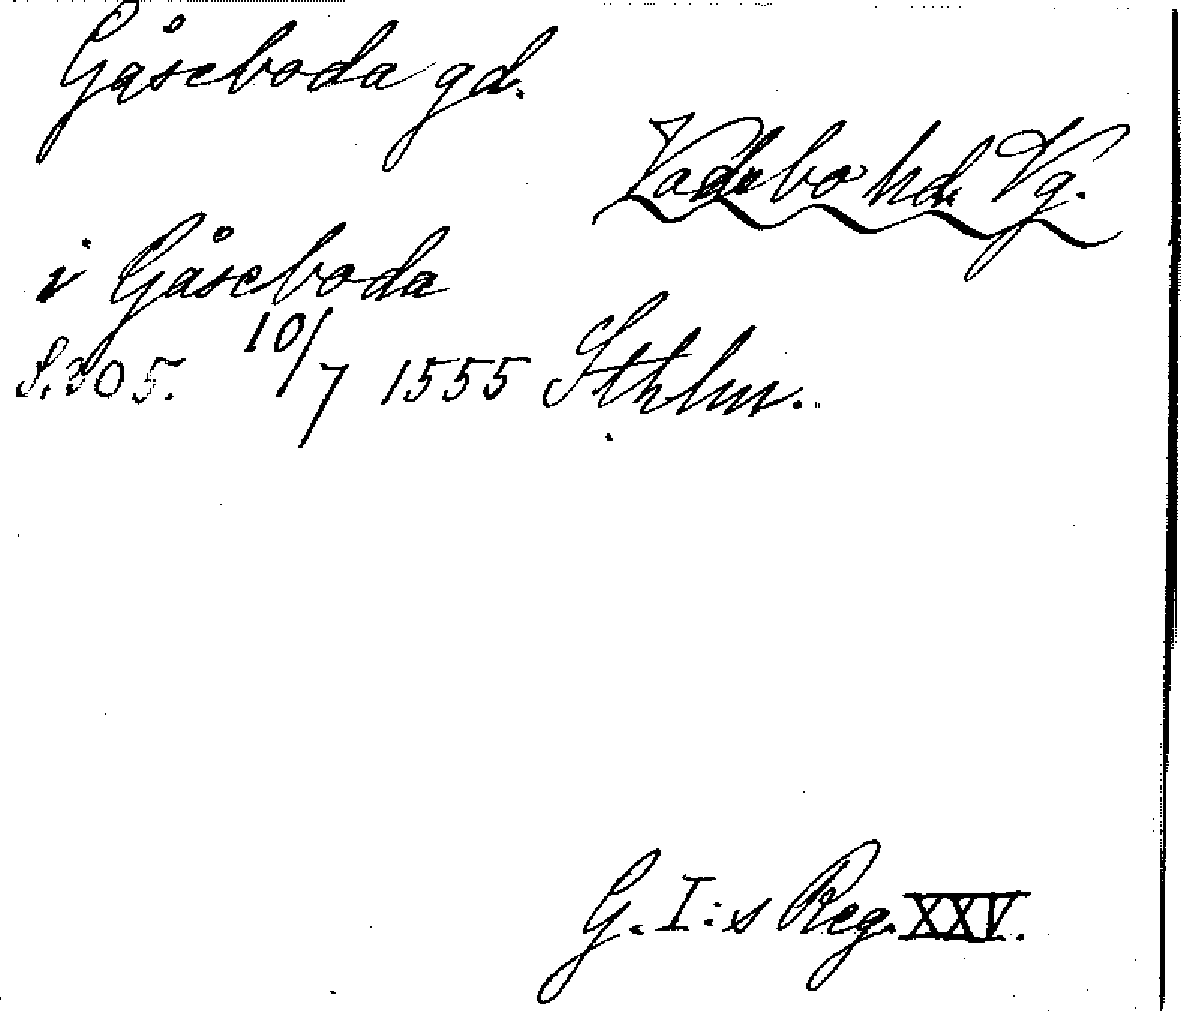 Gåseboda gd.
Vadsbo hd. Vg.
i Gåseboda
S. 305. 10/7 1555 Sthlm.
G. I:s Reg. XXV.